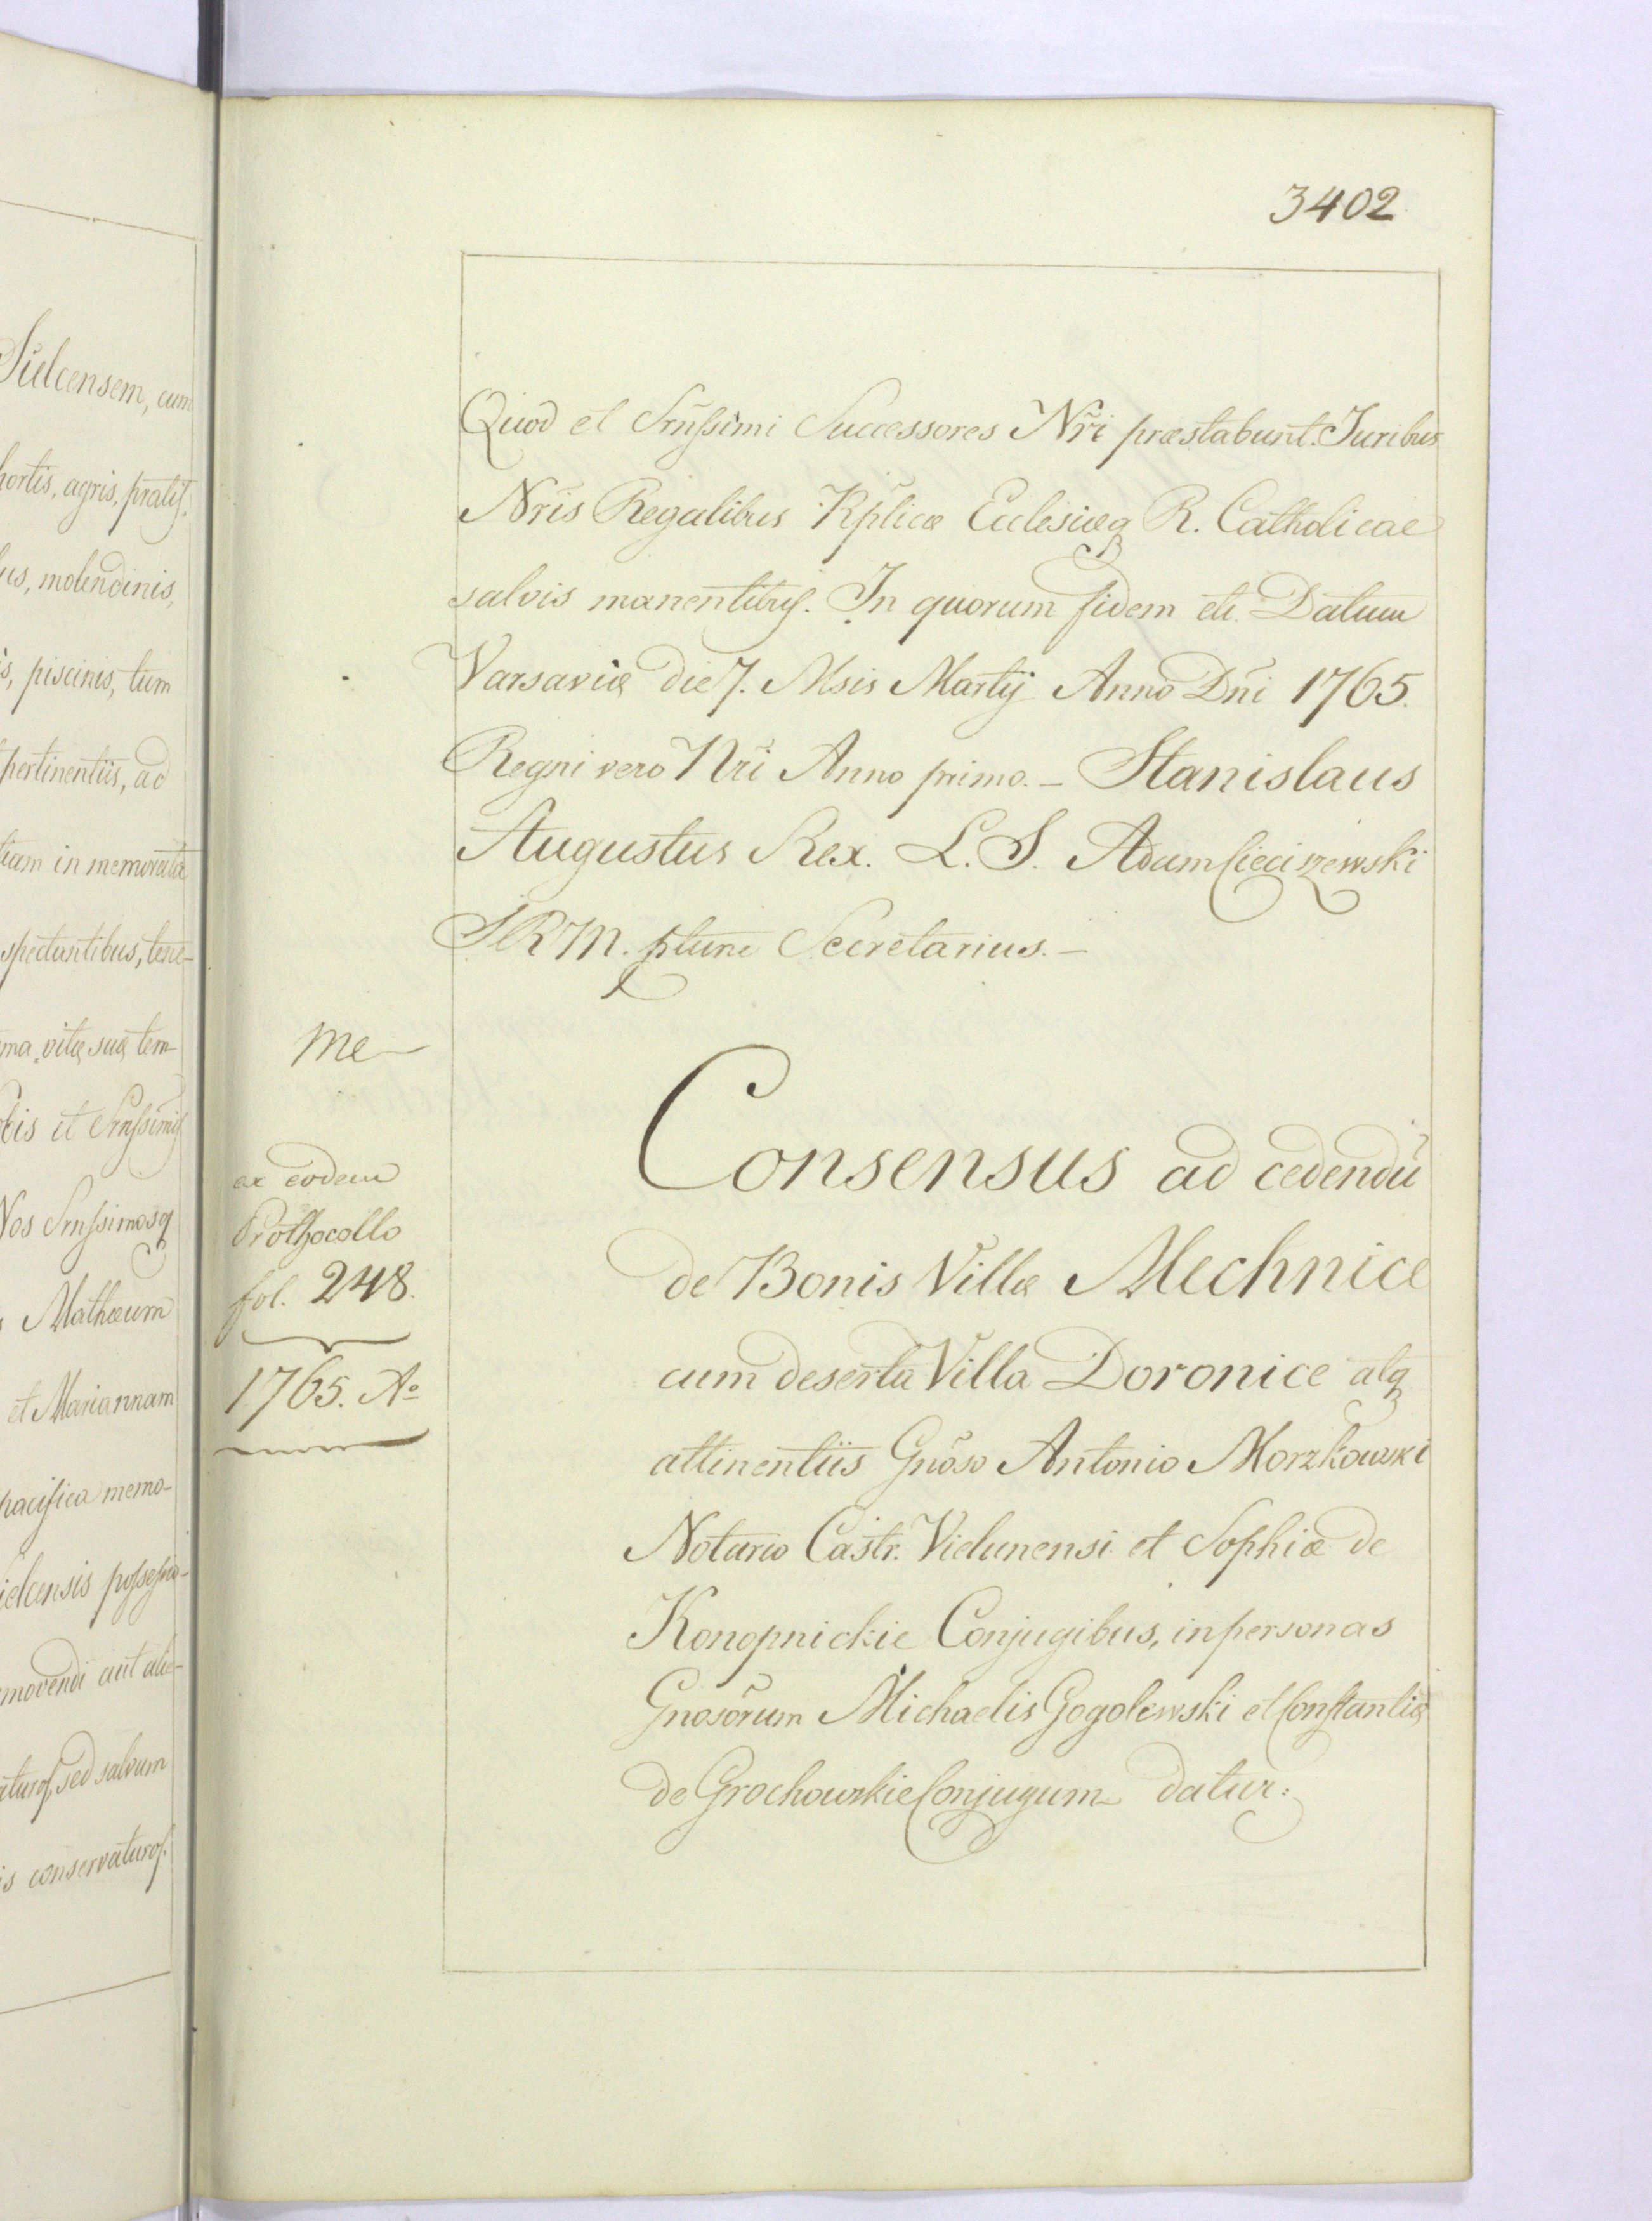 3402
Sielcensem, cum
hortis, agris, pratis,
molendinis,
piscinis, tum
pertinentiis, ad
in memorata
spectantibus, tene-
vitæ suæ tem-
et Srnssimis
Nos Srnssimosq
Mathæum
et Mariannam
pacifica memo-
possessio-
movendi aut alie-
sed salvum
conservaturos.
Quod et Srnssimi Successores Nri præstabunt. Juribus
Nris Regalibus Rplicæ Ecclesiæq R. Catholicae
salvis manentibus. In quorum fidem etc. Datum
Varsaviæ Die 7. Msis Martij Anno Dñi 1765.
Regni vero Nri Anno primo. – Stanislaus
Augustus Rex. L. S. Adam Cieciszewski
S R M. Secretarius. –
Me
ex eodem
Prothocollo
fol. 248.
1765. Aº
Consensus ad cedendū
de Bonis Villæ Mechnice
cum deserta Villa Doronice atq
attinentiis Gnoso Antonio Morzkowski
Notario Castr. Vielunensi et Sophiæ de
Konopnickie Conjugibus, in personas
Gnosorum Michaelis Gogolewski et Constantiæ
de Grochowskie Conjugum datur: